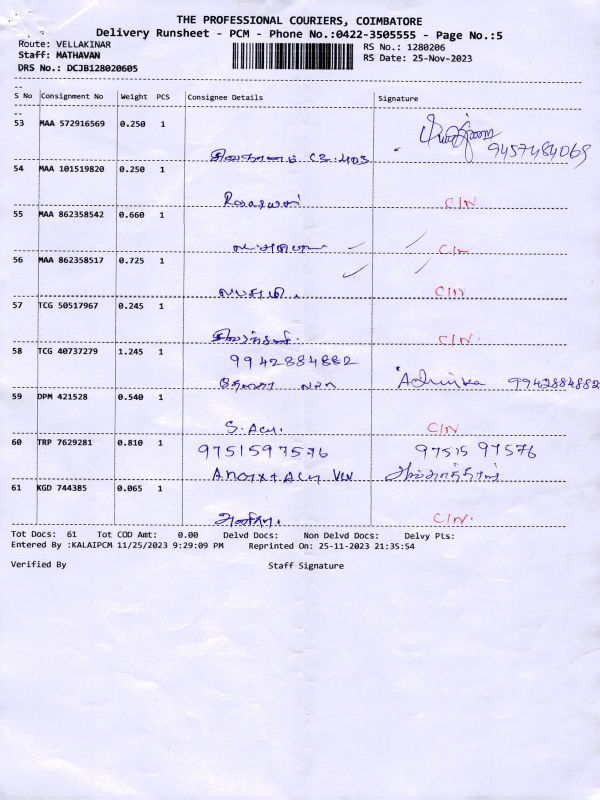 THE PROFESSIONAL COURIERS, COIMBATORE
Delivery Runsheet - PCM - Phone No.:0422-3505555 - Page No.:5
Route: VELLAKINAR RS No.: 1280206
Staff: MATHAVAN RS Date: 25-Nov-2023
DRS No.: DCJB128020605
S No Consignment No Weight PCS Consignee Details Signature
53 MAA 572916569 0.250 1
9457484069
CB.403
54 MAA 101519820 0.250 1
C/N
55 MAA 862358542 0.660 1
C/N
56 MAA 862358517 0.725 1
லட்சுமி. C/N
57 TCG 50517967 0.245 1
C/N.
58 TCG 40737279 1.245 1
9942884882
Advika 9942884882
59 DPM 421528 0.540 1
C/N
60 TRP 7629281 0.810 1
9751597576 97515 97576
61 KGD 744385 0.065 1
C/N.
Tot Docs: 61 Tot COD Amt: 0.00 Delvd Docs: Non Delvd Docs: Delvy Pts:
Entered By :KALAIPCM 11/25/2023 9:29:09 PM Reprinted On: 25-11-2023 21:35:54
Verified By Staff Signature